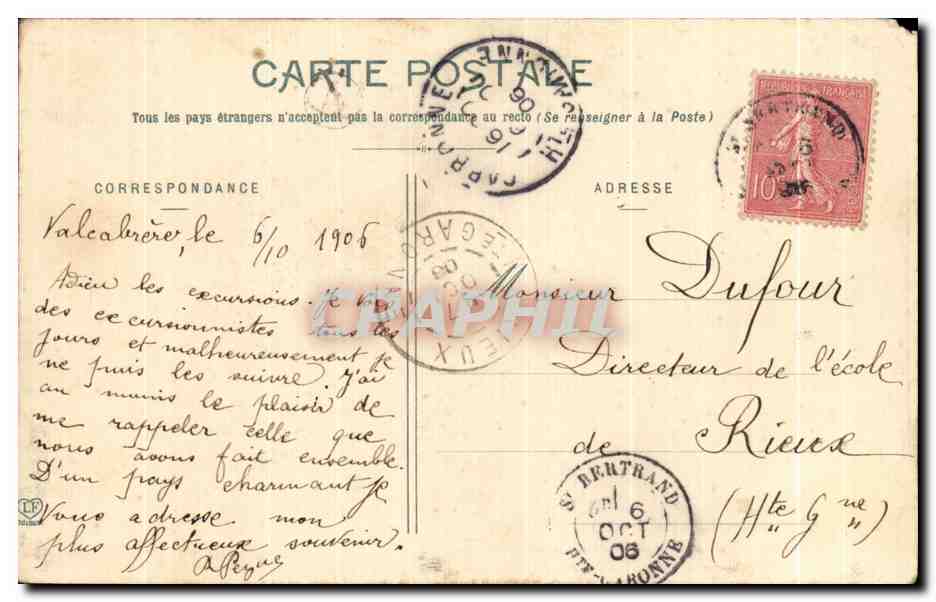 CARTE POSTALE
Tous les pays étrangers n'acceptent pas la correspondance au recto (Se renseigner à la Poste)
CORRESPONDANCE
Valcabrère, le 6/10 1906
Adieu les excursions. Je vois
des excursionnistes tous les
jours et malheureusement je
ne puis les suivre. J'ai
au moins le plaisir de
me rappeler celle que
nous avons fait ensemble.
D'un pays charmant je
vous adresse mon
plus affectueux souvenir.
ADRESSE
Monsieur Dufour
Directeur de l'école
de Rieux
(Hte Gne)
RÉPUBLIQUE FRANÇAISE
10
ST BERTRAND
6
OCT
06
HTE-GARONNE
ST BERTRAND
CARBONNE
HTE GARONNE
16
06
RIEUX
OCT
LF
CPAPHIL